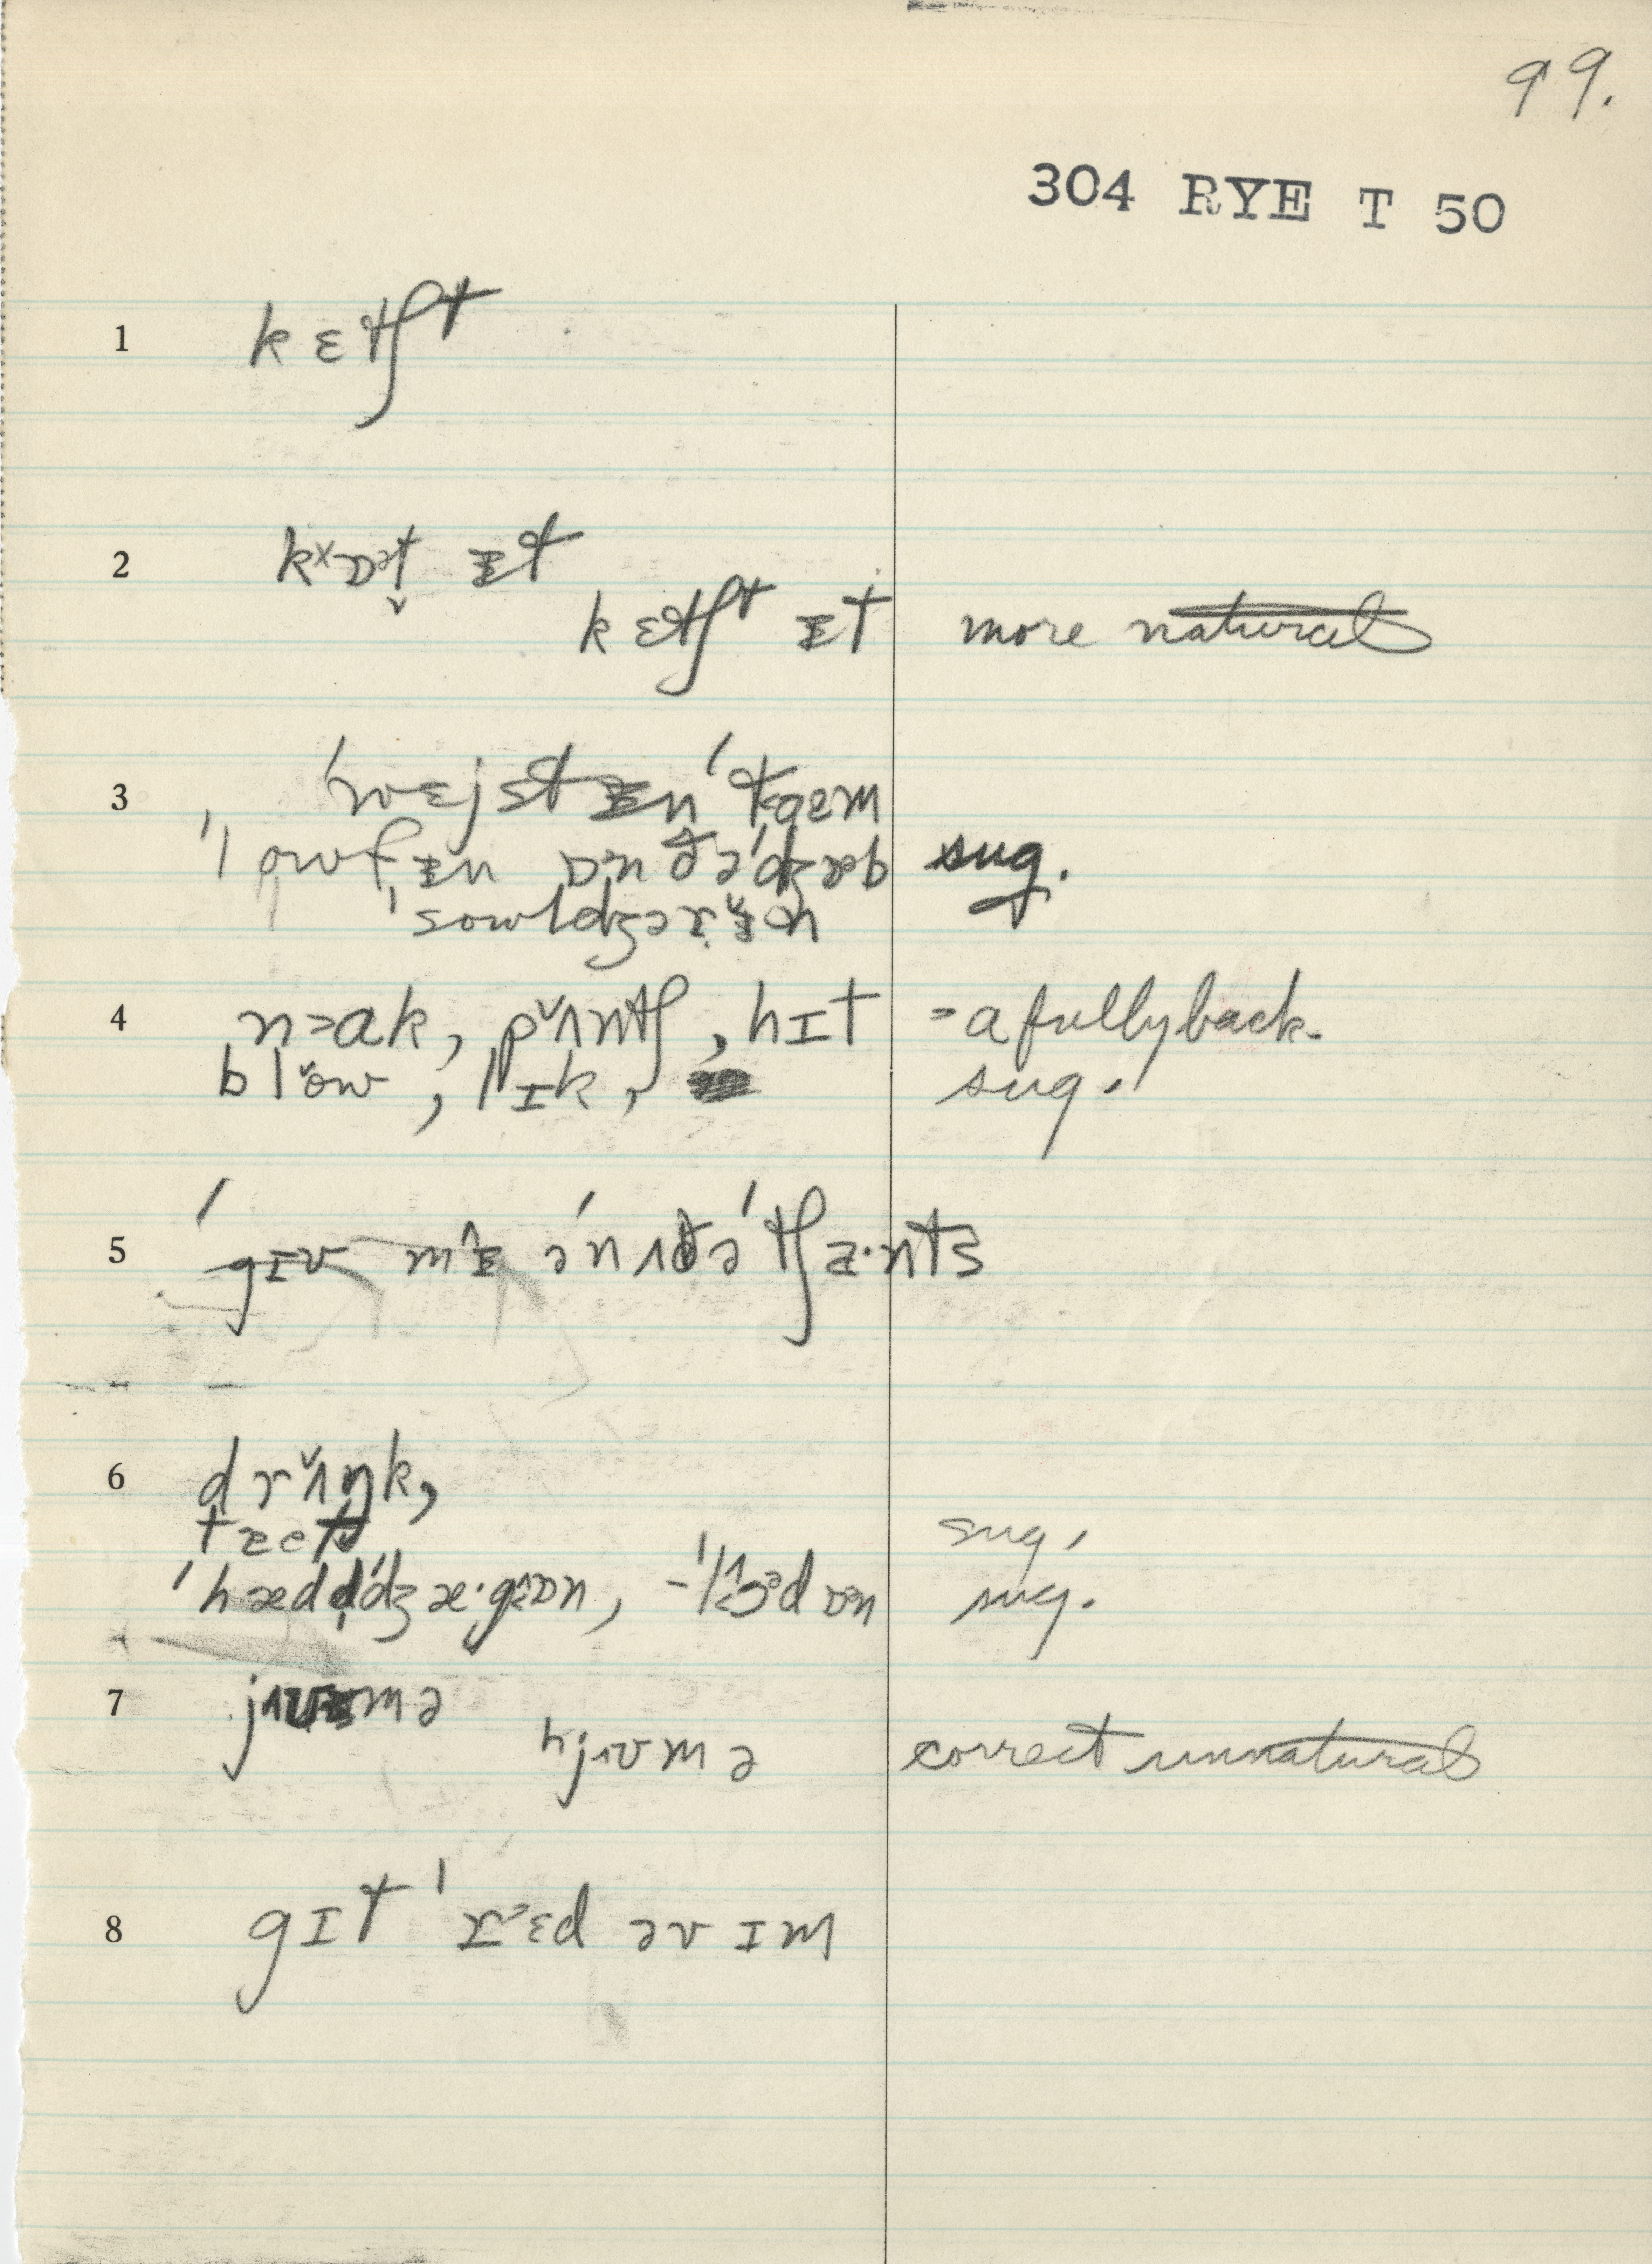 99.
304 RYE T 50
1 kɛtʃt
2 kˣɒᵊt ᵻt
kɛtʃt ᵻt more natural
3 ˈwɛjst ᵻn ˈtɑɛm
ˈlowfᵻn ɒn ðə ˈdʒɑb sug.
ˈsowldʒərᵻn
4 nɑk, pʌntʃ, hɪt = a fully back.
blow, lɪk, sug.
5 ˈgɪv mᵻ əˈnʌðə ˈtʃæ·nts
6 drʌŋk,
taet sug,
ˈhæd ˈdʒæ·g ɒn, ɒn sug.
7 jɪʊmə
hjɪʊmə correct unnatural
8 gɪt ˈrᵊɛd əv ɪm